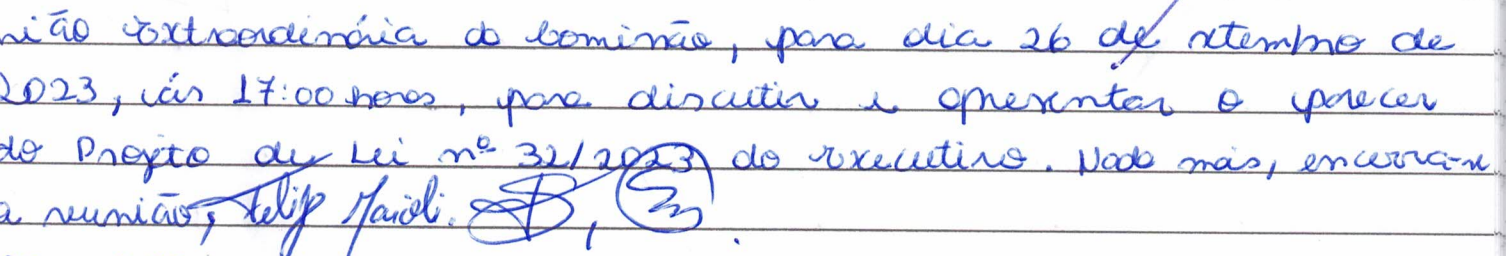 nião extraordinária da comissão, para dia 26 de setembro de
2023, às 17:00 horas, para discutir e apresentar o parecer
do Projeto de Lei nº 32/2023 do executivo. Nada mais, encerra-se
a reunião, Felip Maioli.